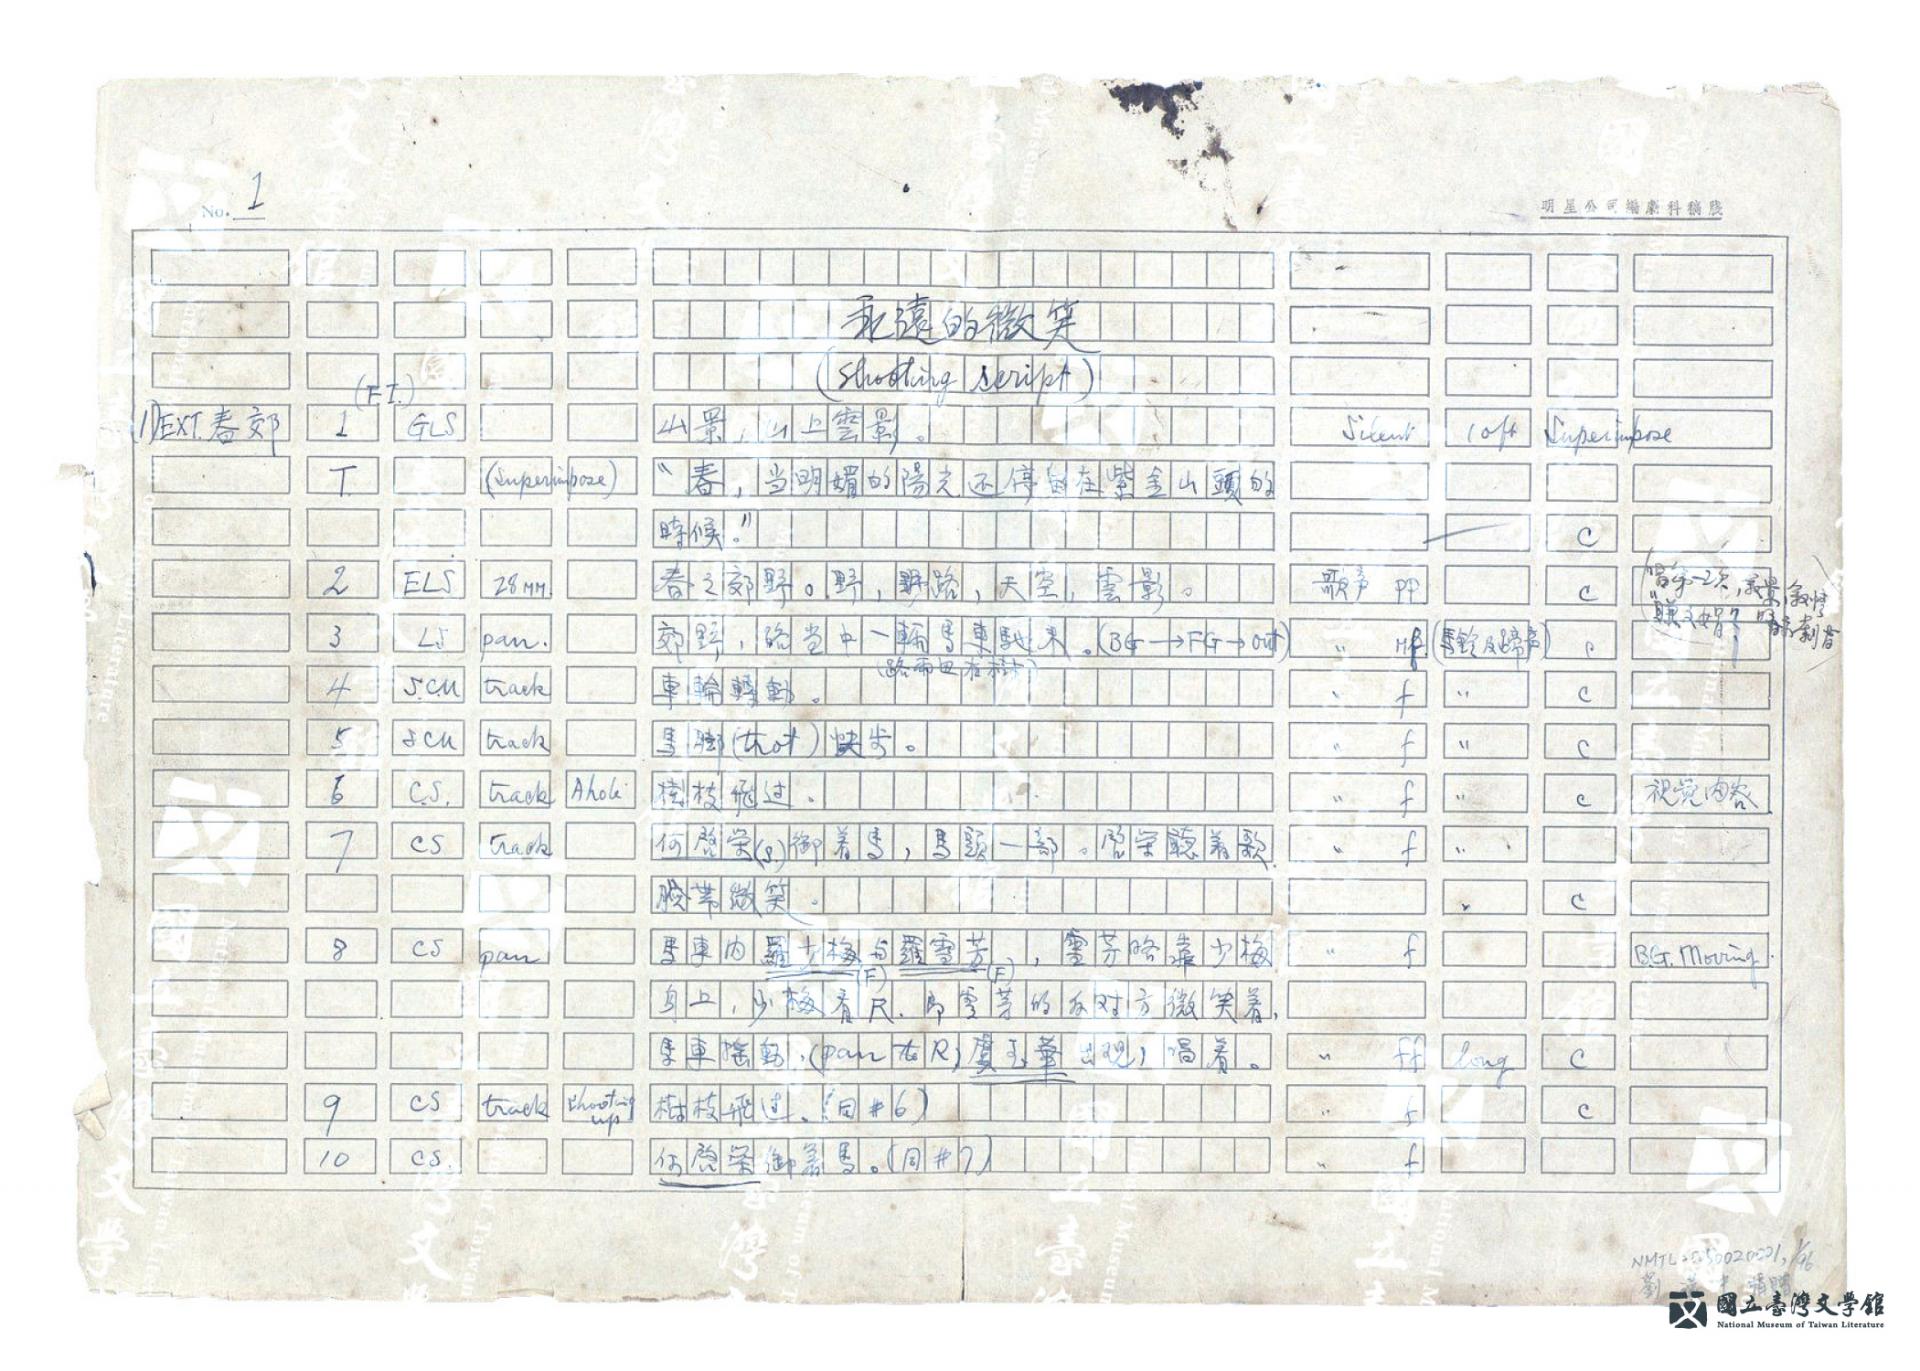 No. 1
明星公司編劇科稿牋
永遠的微笑
(Shooting script)
(F.I.)
1) EXT. 春郊 1 GLS 山景，山上雲影。 Silent 10ft Superimpose
T. (Superimpose) "春，当明媚的陽光还停留在紫金山頭的
時候。" C
2 ELS 28MM. 春之郊野。野，野路，天空，雲影。 歌声 PP C
3 LS pan. 郊野，路当中一輛馬車馳来。(BG→FG→out) " Mf. (馬鈴及蹄声) C
4 S.CU track 車輪轉動。 " f " C
5 SCU track 馬脚(trot)快步。 " f " C
6 C.S. track 樹枝飛过。 " f " C 視覚内容
7 CS track 何啓榮(S.)御着馬，馬頸一部。啓榮聽着歌 " f "
臉带微笑。 " C
8 CS pan 馬車内羅少梅与羅雪芳，雪芳略靠少梅 " f B.G. Moving.
(F) (F)
身上，少梅看R.即雪芳的反对方微笑着，
馬車摇動，(pan to R)虞玉華出現，唱着。 " ff long C
9 CS track shooting up 樹枝飛过。(同#6) " f C
10 CS. 何啓榮御着馬。(同#7) " f
國立臺灣文學館
National Museum of Taiwan Literature